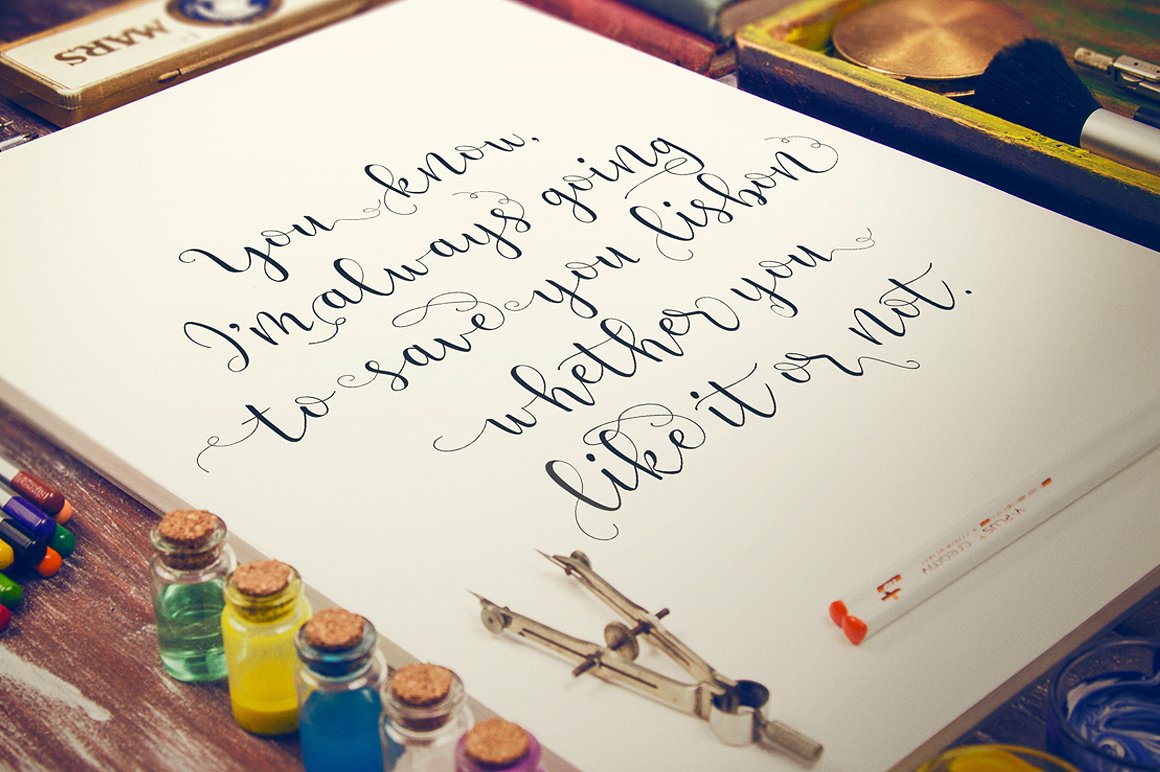 MARS
You know,
I'm always going
to save you lisbon
whether you
like it or not.